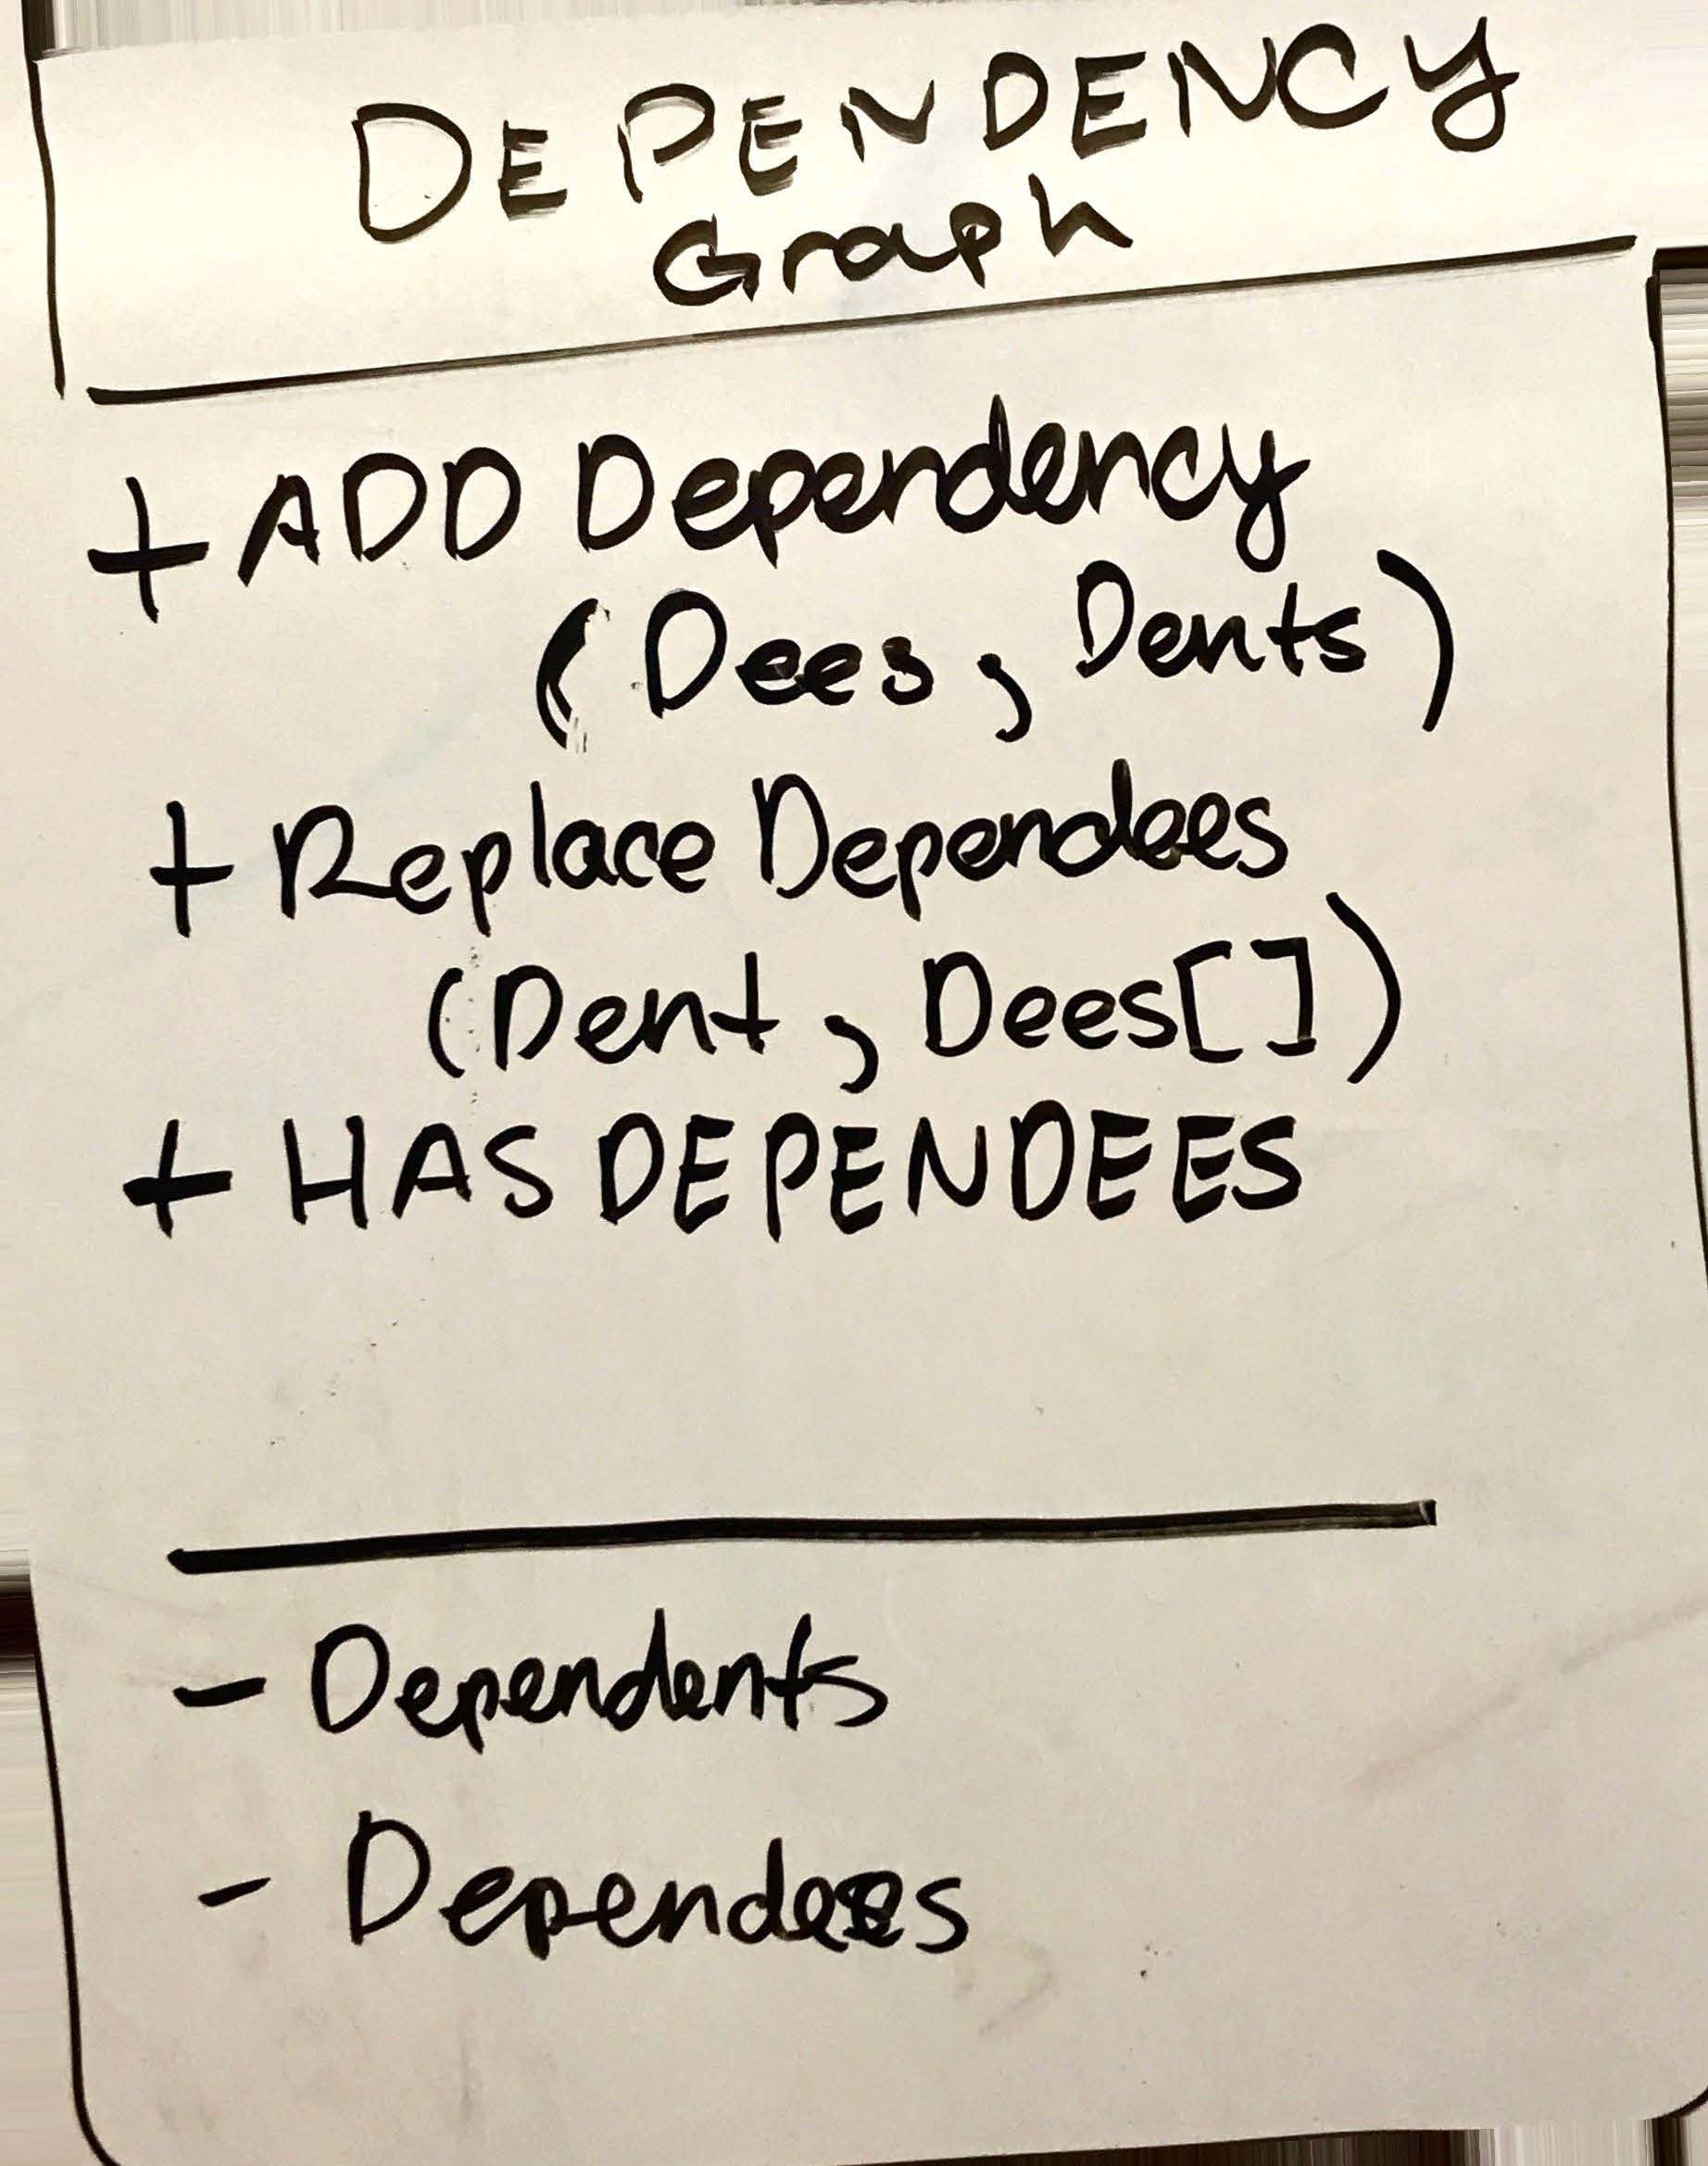 DEPENDENCY
Graph
+ ADD Dependency
(Dees, Dents)
+ Replace Dependees
(Dent, Dees[])
+ HAS DEPENDEES
- Dependents
- Dependees